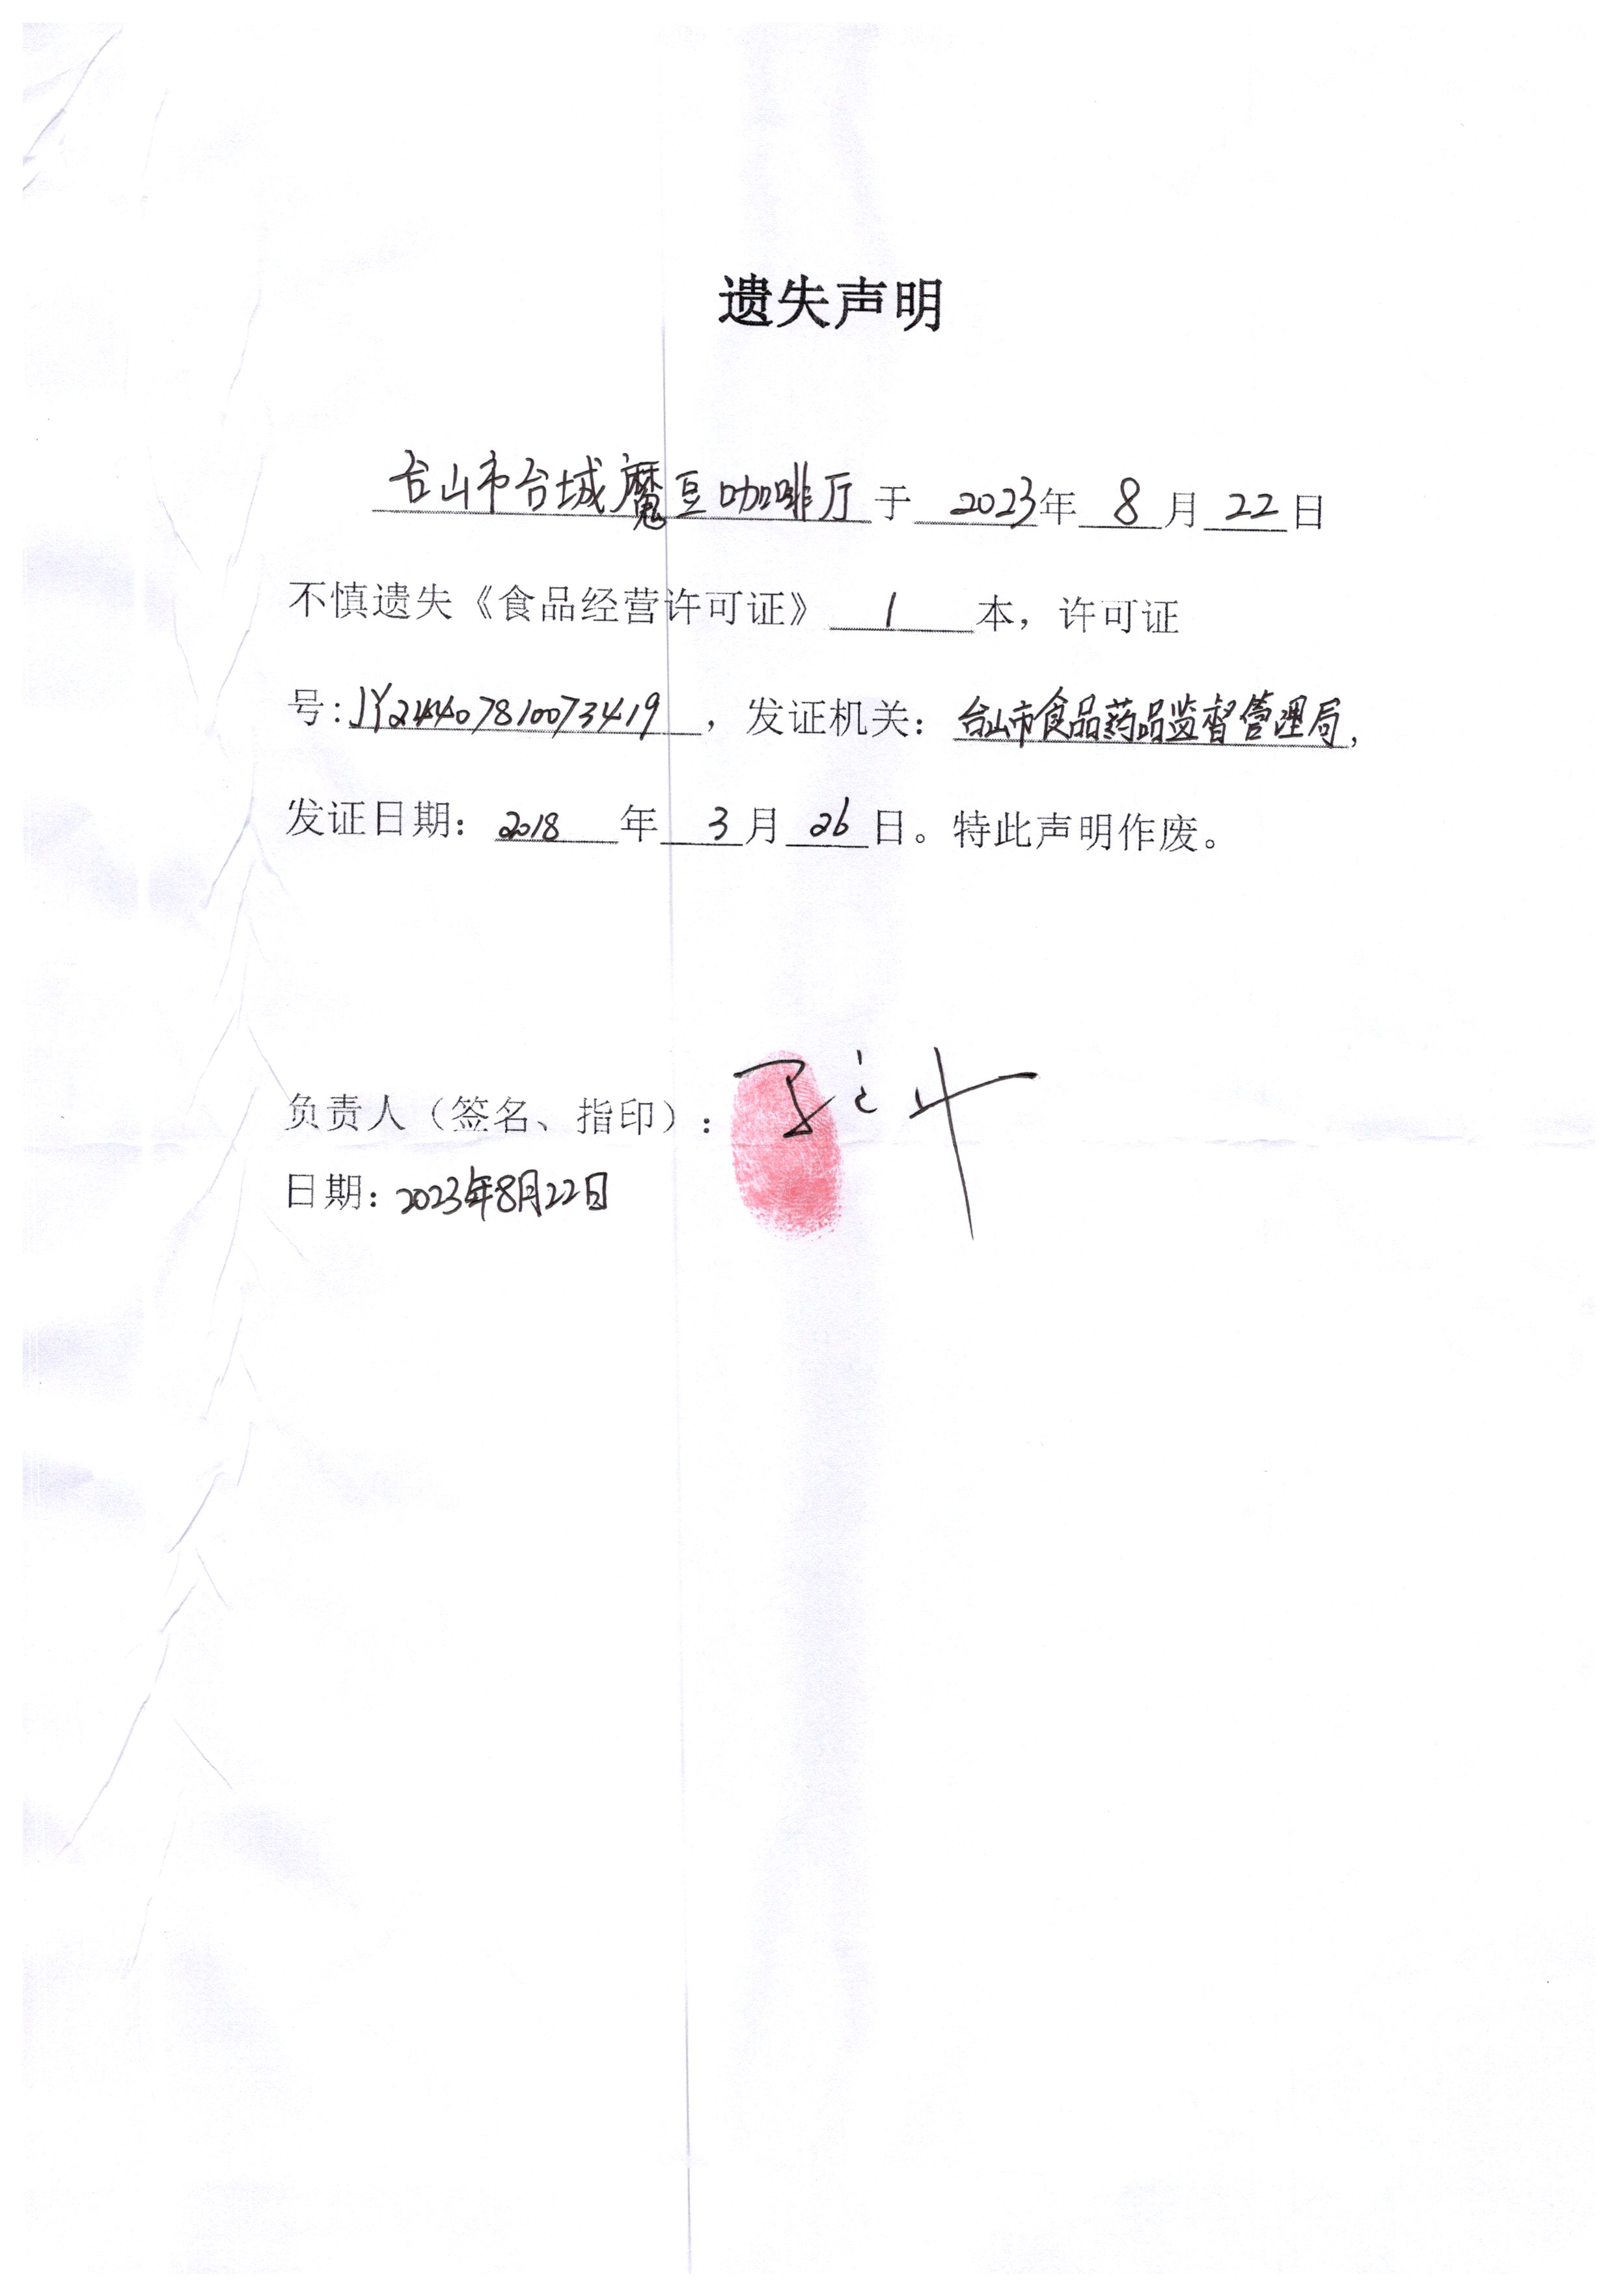 遗失声明
台山市台城魔豆咖啡厅于 2023年 8 月 22 日
不慎遗失《食品经营许可证》 1 本，许可证
号:JY24407810073419，发证机关：台山市食品药品监督管理局，
发证日期：2018 年 3 月 26 日。特此声明作废。
负责人（签名、指印）：
日期：2023年8月22日